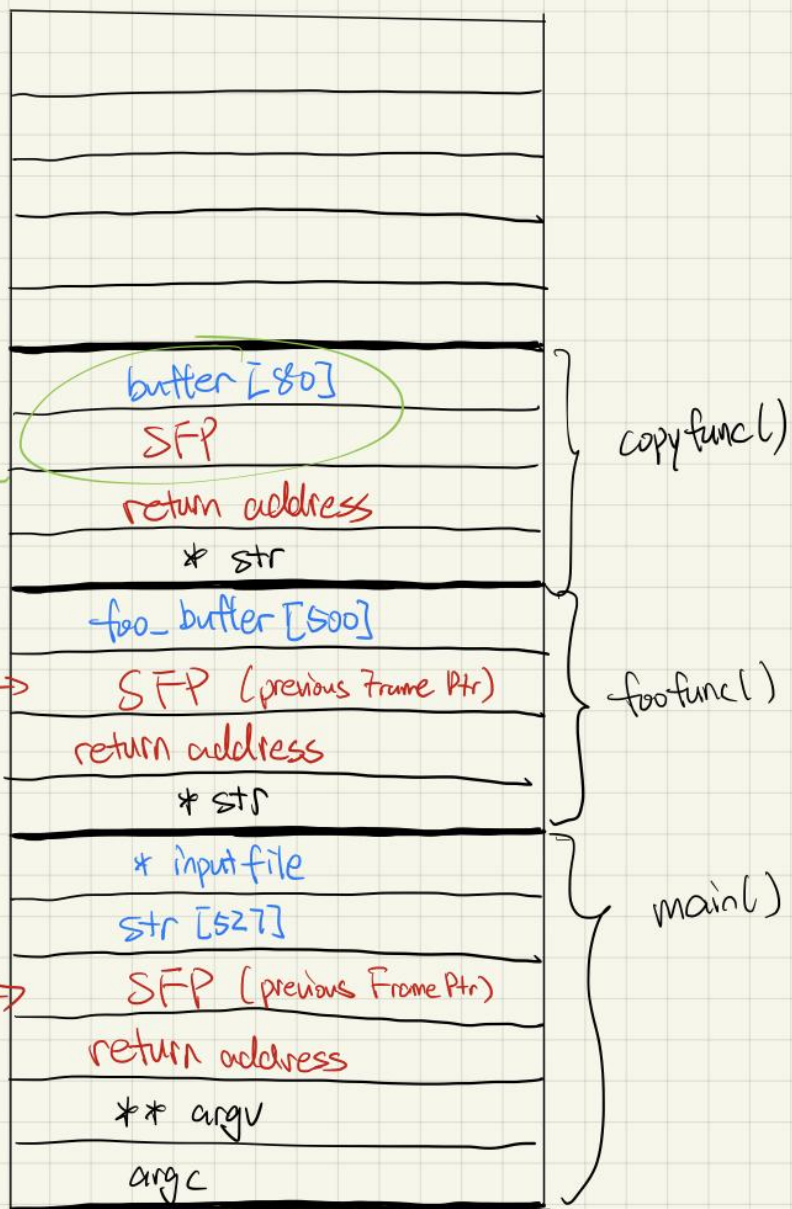 buffer [80]
SFP
return address
* str
copyfunc()
foo_buffer [500]
SFP (previous Frame Ptr)
return address
* str
foofunc()
* inputfile
str [527]
SFP (previous Frame Ptr)
return address
** argv
argc
main()